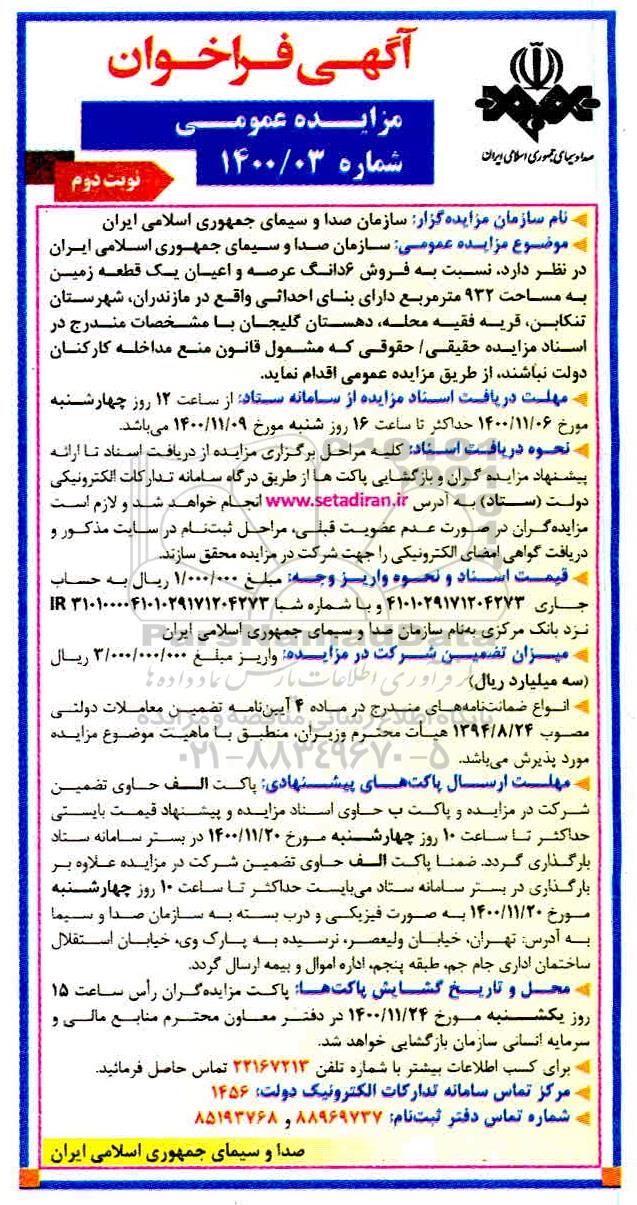 آگهی فراخوان
صدا و سیمای جمهوری اسلامی ایران
مزایده عمومی
شماره ۱۴۰۰/۰۳
نوبت دوم
نام سازمان مزایده‌گزار: سازمان صدا و سیمای جمهوری اسلامی ایران
موضوع مزایده عمومی: سازمان صدا و سیمای جمهوری اسلامی ایران
در نظر دارد، نسبت به فروش ۶دانگ عرصه و اعیان یک قطعه زمین
به مساحت ۹۳۲ مترمربع دارای بنای احداثی واقع در مازندران، شهرستان
تنکابن، قریه فقیه محله، دهستان گلیجان با مشخصات مندرج در
اسناد مزایده حقیقی/ حقوقی که مشمول قانون منع مداخله کارکنان
دولت نباشند، از طریق مزایده عمومی اقدام نماید.
مهلت دریافت اسناد مزایده از سامانه ستاد: از ساعت ۱۲ روز چهارشنبه
مورخ ۱۴۰۰/۱۱/۰۶ حداکثر تا ساعت ۱۶ روز شنبه مورخ ۱۴۰۰/۱۱/۰۹ می‌باشد.
نحوه دریافت اسناد: کلیه مراحل برگزاری مزایده از دریافت اسناد تا ارائه
پیشنهاد مزایده گران و بازگشایی پاکت ها از طریق درگاه سامانه تدارکات الکترونیکی
دولت (ستاد) به آدرس www.setadiran.ir انجام خواهد شد و لازم است
مزایده‌گران در صورت عدم عضویت قبلی، مراحل ثبت‌نام در سایت مذکور و
دریافت گواهی امضای الکترونیکی را جهت شرکت در مزایده محقق سازند.
قیمت اسناد و نحوه واریز وجه: مبلغ ۱/۰۰۰/۰۰۰ ریال به حساب
جاری ۴۱۰۱۰۲۹۱۷۱۲۰۴۲۷۳ و با شماره شبا IR ۳۱۰۱۰۰۰۰۴۱۰۱۰۲۹۱۷۱۲۰۴۲۷۳
نزد بانک مرکزی به‌نام سازمان صدا و سیمای جمهوری اسلامی ایران
میزان تضمین شرکت در مزایده: واریز مبلغ ۳/۰۰۰/۰۰۰/۰۰۰ ریال
(سه میلیارد ریال)
انواع ضمانت‌نامه‌های مندرج در ماده ۴ آیین‌نامه تضمین معاملات دولتی
مصوب ۱۳۹۴/۸/۲۴ هیأت محترم وزیران، منطبق با ماهیت موضوع مزایده
مورد پذیرش می‌باشد.
مهلت ارسال پاکت‌های پیشنهادی: پاکت الف حاوی تضمین
شرکت در مزایده و پاکت ب حاوی اسناد مزایده و پیشنهاد قیمت بایستی
حداکثر تا ساعت ۱۰ روز چهارشنبه مورخ ۱۴۰۰/۱۱/۲۰ در بستر سامانه ستاد
بارگذاری گردد. ضمنا پاکت الف حاوی تضمین شرکت در مزایده علاوه بر
بارگذاری در بستر سامانه ستاد می‌بایست حداکثر تا ساعت ۱۰ روز چهارشنبه
مورخ ۱۴۰۰/۱۱/۲۰ به صورت فیزیکی و درب بسته به سازمان صدا و سیما
به آدرس: تهران، خیابان ولیعصر، نرسیده به پارک وی، خیابان استقلال
ساختمان اداری جام جم، طبقه پنجم، اداره اموال و بیمه ارسال گردد.
محل و تاریخ گشایش پاکت‌ها: پاکت مزایده‌گران رأس ساعت ۱۵
روز یکشنبه مورخ ۱۴۰۰/۱۱/۲۴ در دفتر معاون محترم منابع مالی و
سرمایه انسانی سازمان بازگشایی خواهد شد.
برای کسب اطلاعات بیشتر با شماره تلفن ۲۲۱۶۷۲۱۳ تماس حاصل فرمائید.
مرکز تماس سامانه تدارکات الکترونیک دولت: ۱۴۵۶
شماره تماس دفتر ثبت‌نام: ۸۸۹۶۹۷۳۷ و ۸۵۱۹۳۷۶۸
صدا و سیمای جمهوری اسلامی ایران
ParsNamadData
پایگاه اطلاع رسانی مناقصه و مزایده
۰۲۱-۸۸۳۴۹۶۷۰-۵